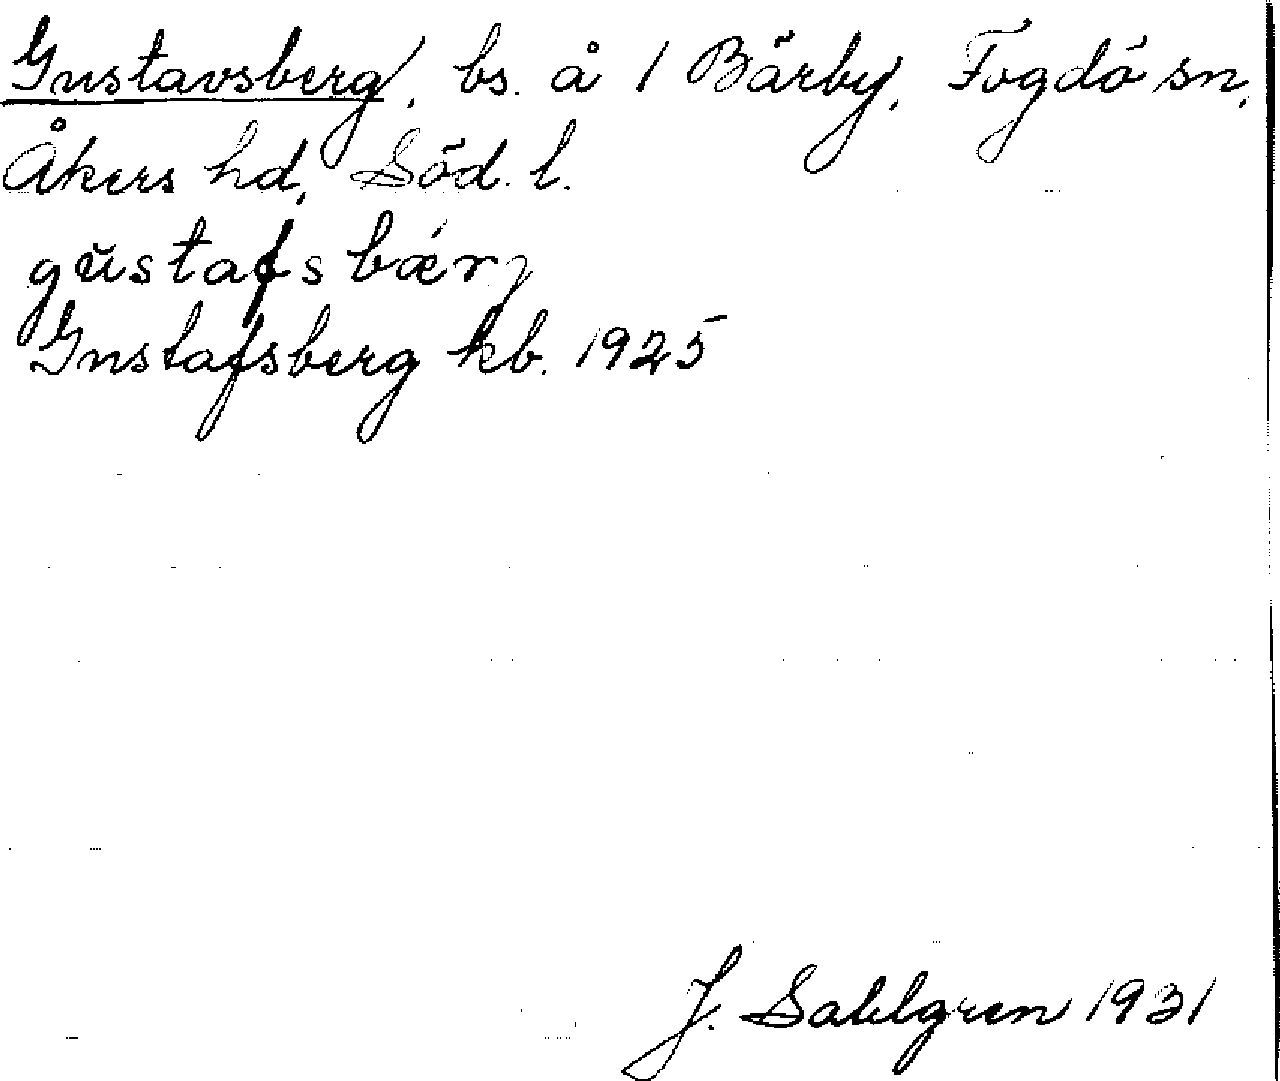 Gustavsberg, bs. å 1 Bärby, Fogdö sn,
Åkers hd, Söd. l.
gŭstafsbǽrj
Gustafsberg kb. 1925
J. Sahlgren 1931